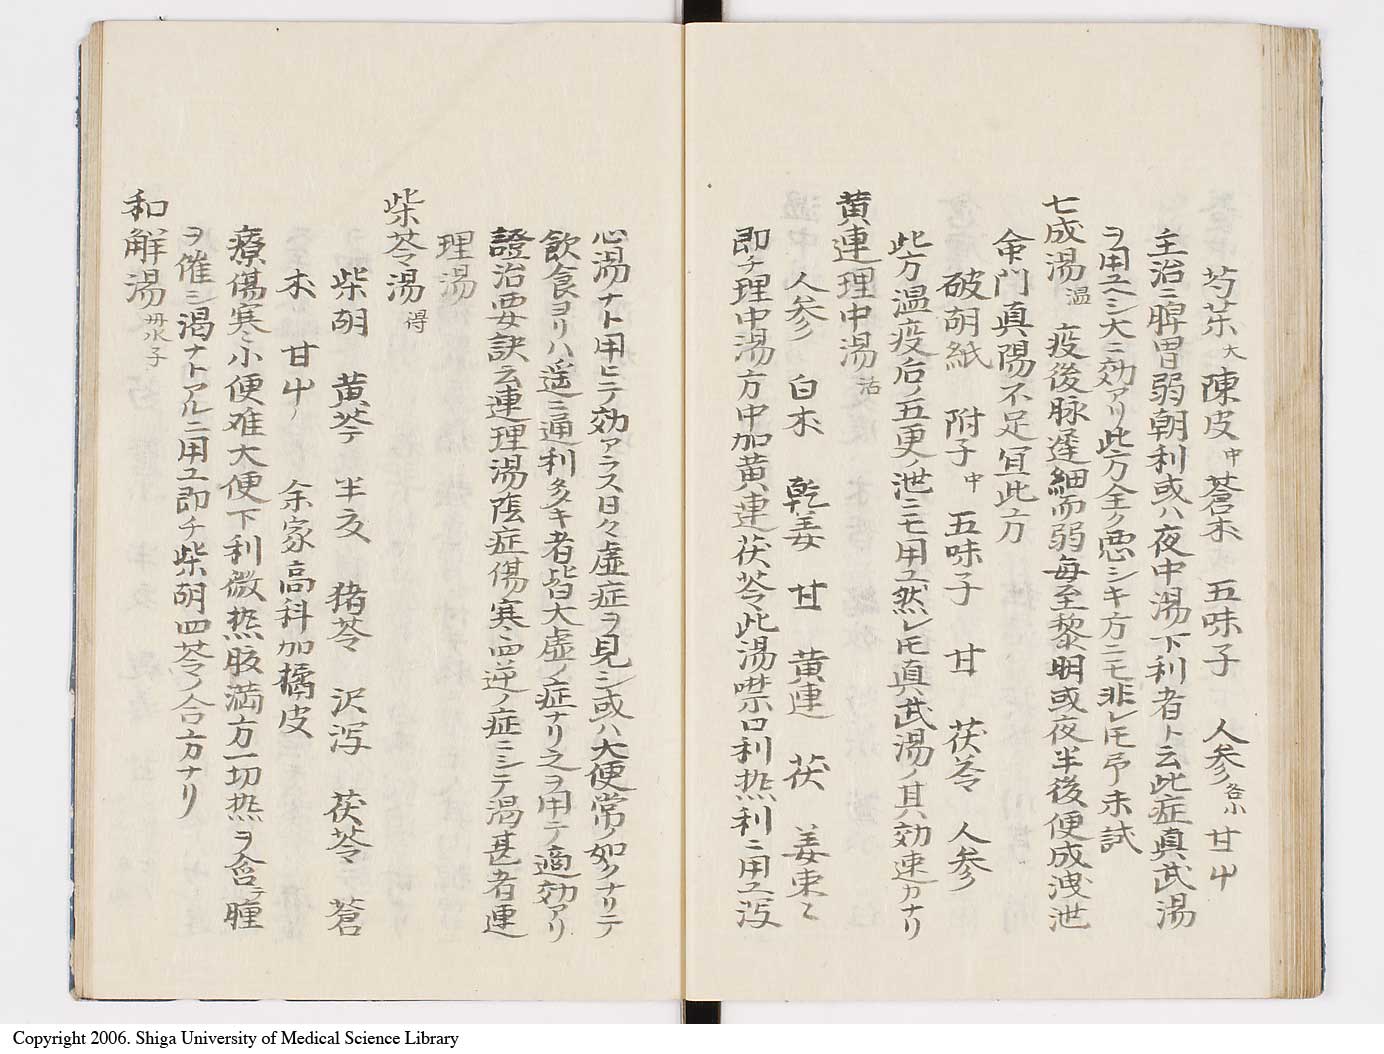 芍薬大 陳皮中 蒼朮 五味子 人参各小 甘艸
主治ニ脾胃弱朝利或ハ夜中湯下利者ト云此症真武湯
ヲ用ユヘシ大ニ効アリ此方全ク悪シキ方ニモ非レ𪜈予未試
七成湯温 疫後脉遅細而弱毎至黎明或夜半後便成洩泄
命門真陽不足宜此方
破胡紙 附子中 五味子 甘 茯苓 人参
此方温疫后ノ五更ノ泄ニモ用ユ然レ𪜈真武湯ノ其効速カナリ
黄連理中湯治
人参 白朮 乾姜 甘 黄連 茯 姜棗〻
即チ理中湯方中加黄連茯苓此湯噤口利熱利ニ用ユ瀉
心湯ナト用ヒテ効アラス日々虚症ヲ見シ或ハ大便常ノ如クナリテ
飲食ヨリハ遥ニ通利多キ者皆大虚ノ症ナリ之ヲ用テ適効アリ
證治要訣云連理湯陰症傷寒四逆ノ症ニシテ渇甚者連
理湯
柴苓湯得
柴胡 黄芩 半夏 猪苓 沢瀉 茯苓 蒼
朮 甘艸 余家高科加橘皮
療傷寒〻小便难大便下利微熱腹満方一切熱ヲ含テ瞳
ヲ催シ渇ナトアルニ用ユ即チ柴胡四苓ノ合方ナリ
和解湯